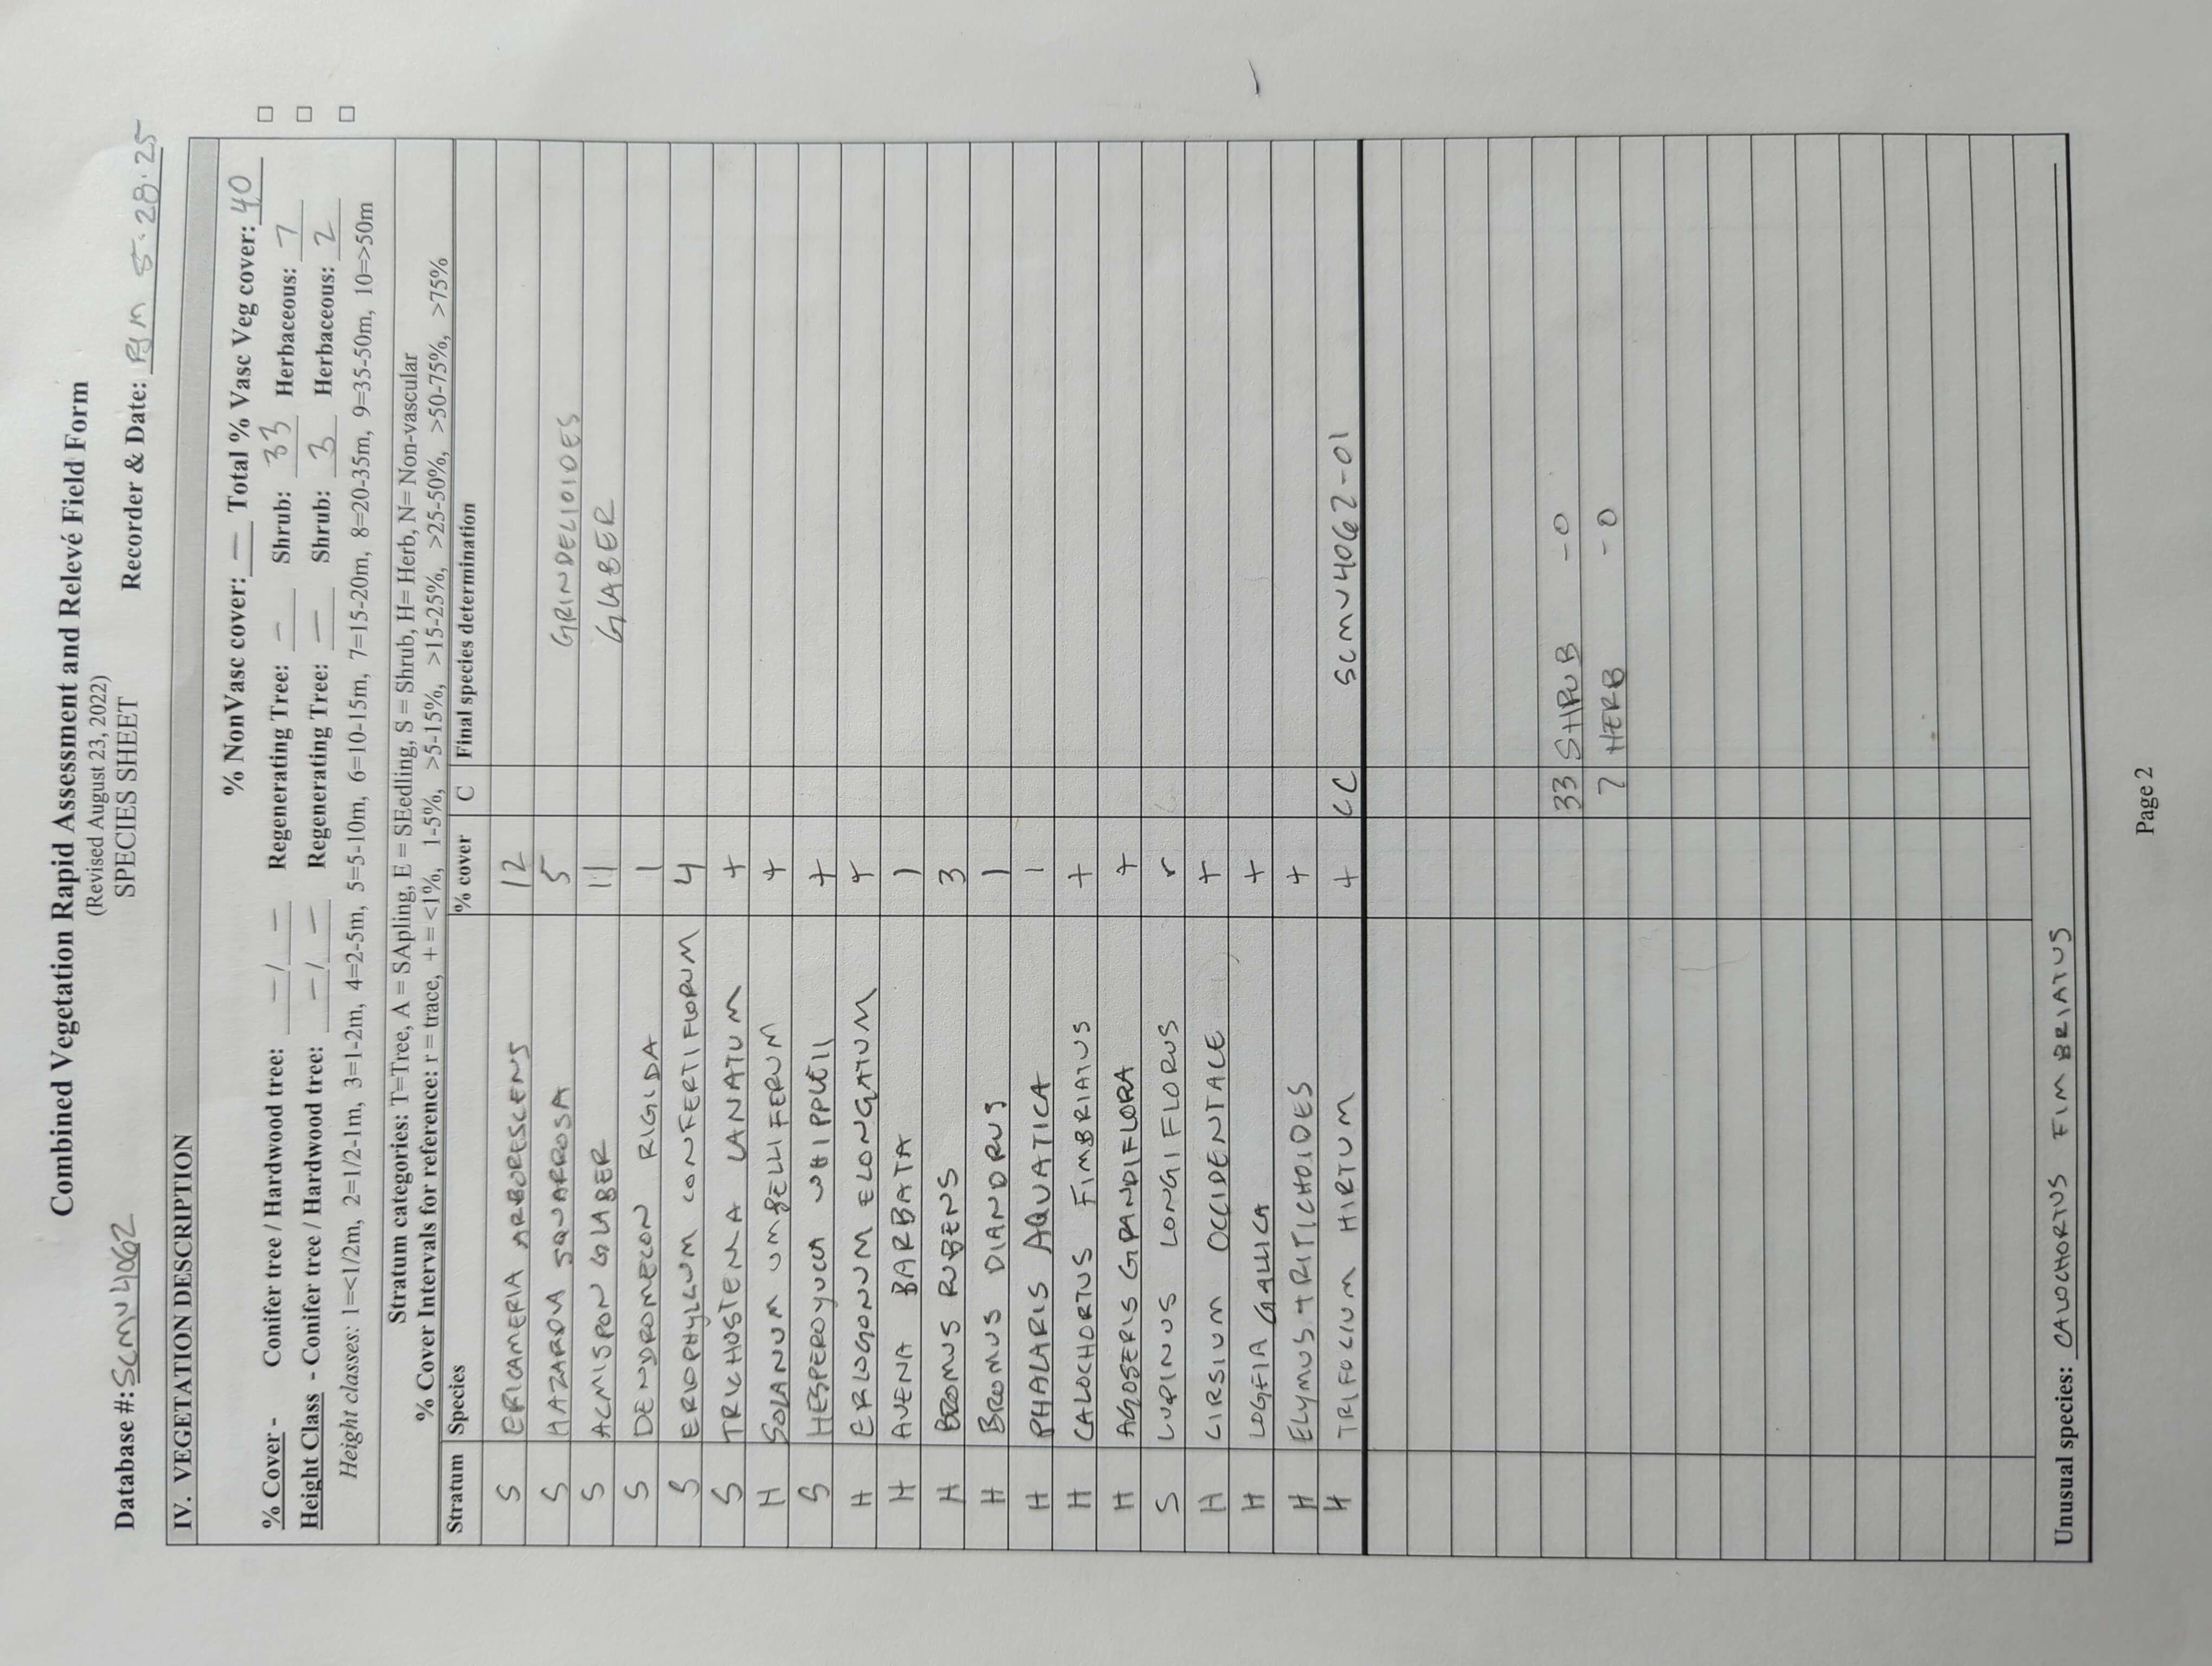 Combined Vegetation Rapid Assessment and Relevé Field Form
(Revised August 23, 2022)
SPECIES SHEET
Database #: SCMV4062 Recorder & Date: PJM 5.28.25
IV. VEGETATION DESCRIPTION
% NonVasc cover: — Total % Vasc Veg cover: 40
% Cover - Conifer tree / Hardwood tree: — / — Regenerating Tree: — Shrub: 33 Herbaceous: 7 □
Height Class - Conifer tree / Hardwood tree: — / — Regenerating Tree: — Shrub: 3 Herbaceous: 2 □
Height classes: 1=<1/2m, 2=1/2-1m, 3=1-2m, 4=2-5m, 5=5-10m, 6=10-15m, 7=15-20m, 8=20-35m, 9=35-50m, 10=>50m □
Stratum categories: T=Tree, A = SApling, E = SEedling, S = Shrub, H= Herb, N= Non-vascular
% Cover Intervals for reference: r = trace, + = <1%, 1-5%, >5-15%, >15-25%, >25-50%, >50-75%, >75%
Stratum Species % cover C Final species determination
S ERICAMERIA ARBORESCENS 12
S HAZARDIA SQUARROSA 5 GRINDELIOIDES
S ACMISPON GLABER 11 GLABER
S DENDROMECON RIGIDA 1
S ERIOPHYLLUM CONFERTIFLORUM 4
S TRICHOSTEMA LANATUM +
H SOLANUM UMBELLIFERUM +
S HESPEROYUCCA WHIPPLEII +
H ERIOGONUM ELONGATUM +
H AVENA BARBATA 1
H BROMUS RUBENS 3
H BROMUS DIANDRUS 1
H PHALARIS AQUATICA 1
H CALOCHORTUS FIMBRIATUS +
H AGOSERIS GRANDIFLORA +
S LUPINUS LONGIFLORUS r
H CIRSIUM OCCIDENTALE +
H LOGFIA GALLICA +
H ELYMUS TRITICHOIDES +
H TRIFOLIUM HIRTUM + CC SCMV4062-01
33 SHRUB -0
7 HERB -0
Unusual species: CALOCHORTUS FIMBRIATUS
Page 2